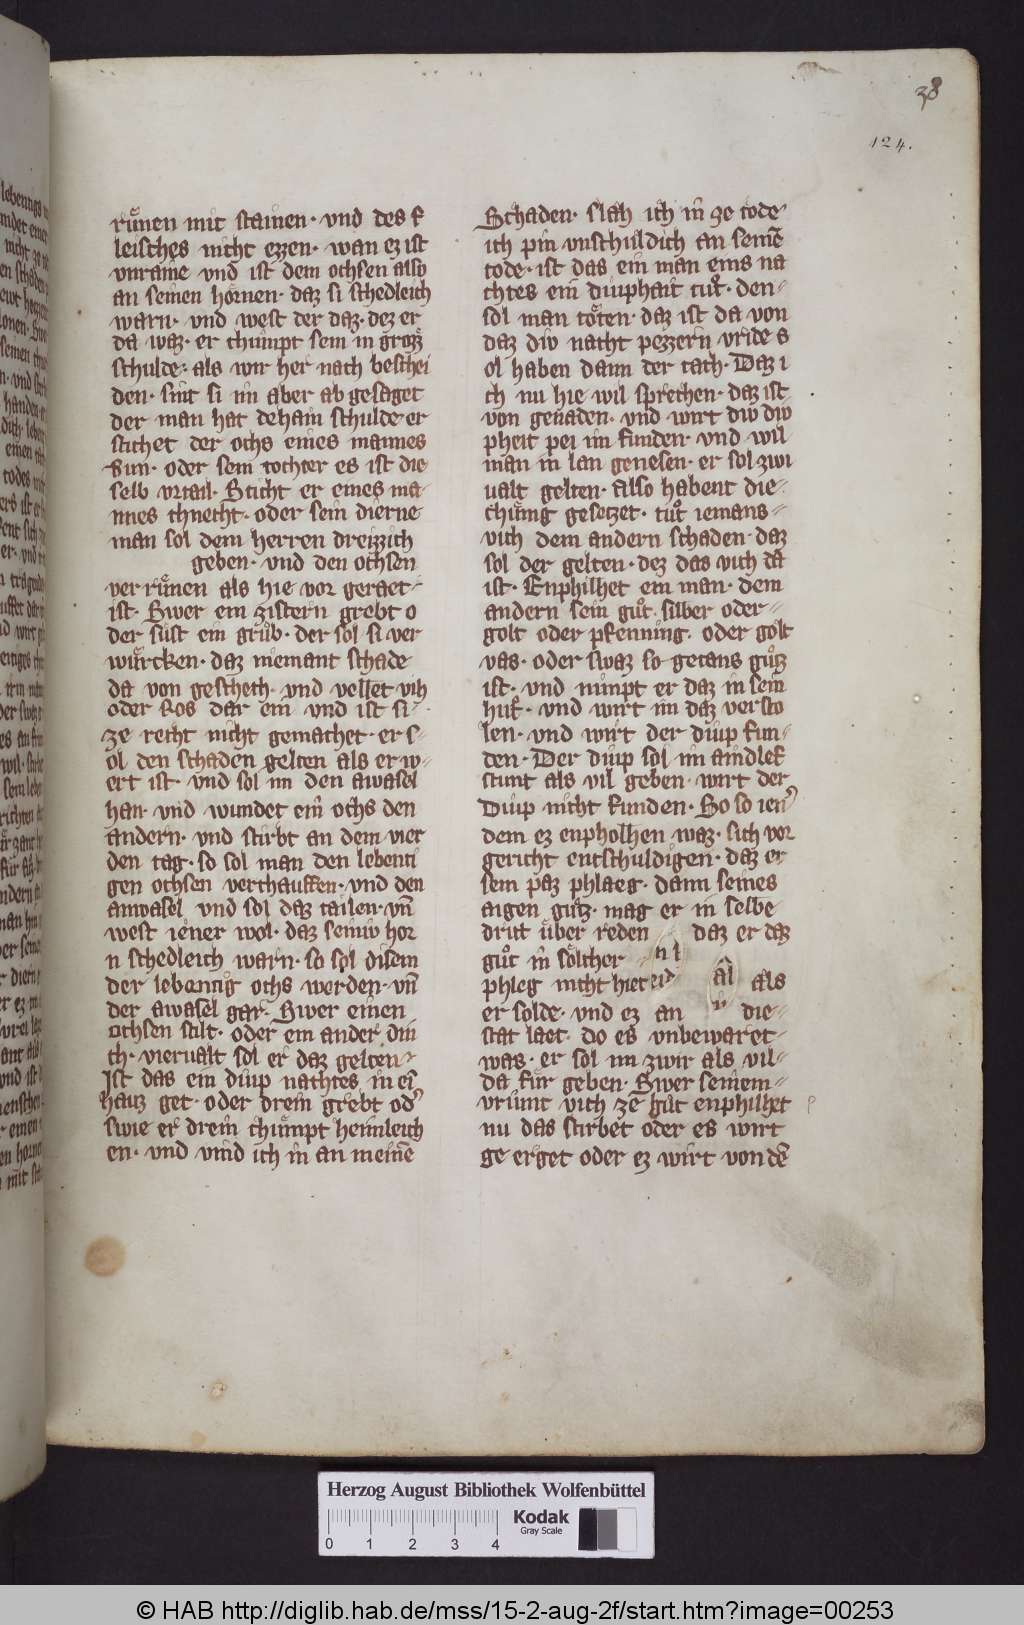 38
124.
růnen mit stainen · vnd des f
leisches nicht ezzen · wan ez ist
vnraine vnd ist dem ochsen also
an seinen hornen · daz si schedleich
warn · vnd west der daz · dez er
da waz · er chumpt sein in grozz
schulde · als wir her nach beschei
den · sint si im aber ab gesaget
der man hat dehain schulde · er
stichet der ochs eines mannes
Sun · oder sein tochter es ist die
selb vrtail · Sticht er eines ma
nnes chnecht · oder sein dierne
man sol dem herren dreizzich
geben · vnd den ochsen
ver růnen als hie vor geraet
ist · Swer ein zistern grebt o
der sust ein grůb · der sol si ver
wurcken · daz niemant schade
da von geschech · vnd vellet vih
oder Ros dar ein vnd ist si
ze recht nicht gemachet · er s
ol den schaden gelten als er w
ert ist · vnd sol im den awasel
han · vnd wundet ein ochs den
andern · vnd stirbt an dem vier
den tag · so sol man den lebenti
gen ochsen verchauffen · vnd den
anwasel vnd sol daz tailen · vn̄
west iener wol · daz seiniv hor
n schedleich warn · so sol disem
der lebentig ochs werden · vn̄
der awasel gar · Swer einen
ochsen stilt · oder ein ander din
ch · viervalt sol er daz gelten
Ist das ein diup nachtes in ei
hauz get · oder drein grebt od
swie er drein chumpt heimleich
en · vnd vind ich in an meinē
Schaden · slah ich in ze tode
ich pin vnschuldich an seinē
tode · ist das ein man eins na
chtes ein diuphait tůt · den
sol man töten · daz ist da von
daz div nacht pezzern vride s
ol haben dann der tach · Daz i
ch nu hie wil sprechen · daz ist
von genaden · vnd wirt div div
pheit pei im funden · vnd wil
man in lan genesen · er sol zwi
ualt gelten · also habent die
chung gesetzet · tůt iemans
vich dem andern schaden · daz
sol der gelten · dez das vich da
ist · Enphilhet ein man · dem
andern sein gůt · silber oder
golt oder pfenning · oder golt
vas · oder swaz so getans gůtz
ist · vnd nimpt er daz in sein
hut · vnd wirt im daz versto
len · vnd wirt der diup fun
den · Der diup sol im aindlef
stunt als vil geben · wirt der
Diup nicht funden · So so ien
dem ez enpholhen waz · sich vor
gericht entschuldigen · daz er
sein paz phlaeg · dann seines
aigen gůtz · mag er in selbe
dritt uber reden daz er daz
gůt in sölcher
phleg nicht hiet als
er solde · vnd ez an die
stat laet · do es vnbewaret
was · er sol im zwir als vil
da fur geben · Swer seinem
vriunt vich ze hůt enphilhet
nu das stirbet oder es wirt
ge erget oder ez wirt von dē
Herzog August Bibliothek Wolfenbüttel
0 1 2 3 4
Kodak
Gray Scale
© HAB http://diglib.hab.de/mss/15-2-aug-2f/start.htm?image=00253